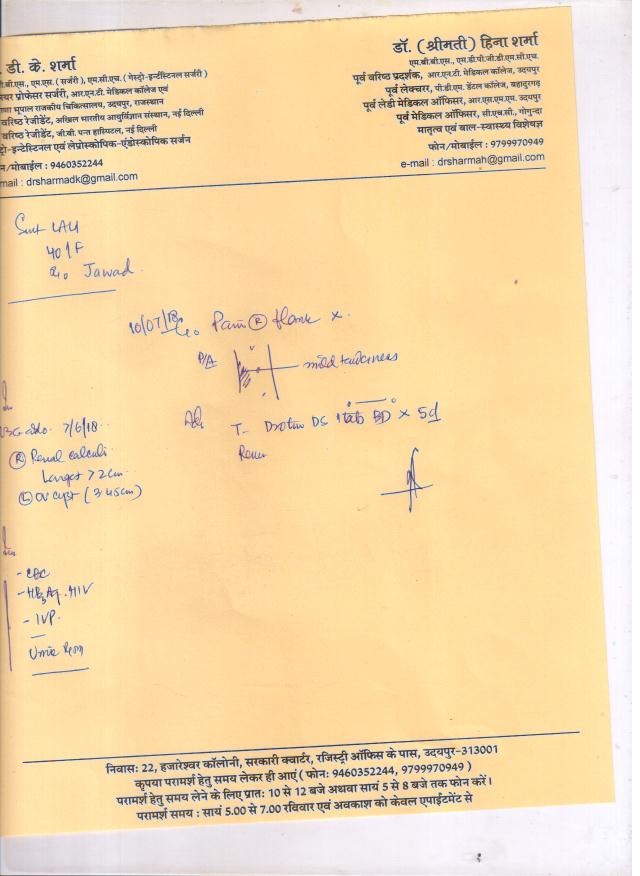 डी. के. शर्मा
बी.एस., एम.एस. ( सर्जरी ), एम.सी.एच. ( गेस्ट्रो-इन्टेंस्टिनल सर्जरी )
प्रोफेसर सर्जरी, आर.एन.टी. मेडिकल कॉलेज एवं
भूपाल राजकीय चिकित्सालय, उदयपुर, राजस्थान
वरिष्ठ रेजीडेंट, अखिल भारतीय आयुर्विज्ञान संस्थान, नई दिल्ली
वरिष्ठ रेजीडेंट, जी.बी. पन्त हास्पिटल, नई दिल्ली
ट्रो-इन्टेस्टिनल एवं लेप्रोस्कोपिक-एंडोस्कोपिक सर्जन
न/मोबाईल : 9460352244
mail : drsharmadk@gmail.com
डॉ. ( श्रीमती ) हिना शर्मा
एम.बी.बी.एस., एम.डी.पी.जी.डी.एम.सी.एच.
पूर्व वरिष्ठ प्रदर्शक, आर.एन.टी. मेडिकल कॉलेज, उदयपुर
पूर्व लेक्चरर, पी.डी.एम. डेंटल कॉलेज, बहादुरगढ़
पूर्व लेडी मेडिकल ऑफिसर, आर.एस.एम.एम. उदयपुर
पूर्व मेडिकल ऑफिसर, सी.एच.सी., गोगुन्दा
मातृत्व एवं बाल-स्वास्थ्य विशेषज्ञ
फोन/मोबाईल : 9799970949
e-mail : drsharmah@gmail.com
Smt LALI
40/F
R/o Jawad
10/07/18 c/o Pain (R) flank x
P/A
mild tenderness
Adv
T- Drotin DS 1 tab BD x 5d
7/6/18
(R) Renal calculi
Largest > 2cm
(L) ov cyst ( 3.45cm )
- CBC
- HBsAg. HIV
- IVP.
Urine
निवास: 22, हजारेश्वर कॉलोनी, सरकारी क्वार्टर, रजिस्ट्री ऑफिस के पास, उदयपुर-313001
कृपया परामर्श हेतु समय लेकर ही आएं ( फोन: 9460352244, 9799970949 )
परामर्श हेतु समय लेने के लिए प्रात: 10 से 12 बजे अथवा सायं 5 से 8 बजे तक फोन करें।
परामर्श समय : सायं 5.00 से 7.00 रविवार एवं अवकाश को केवल एपाईटमेंट से